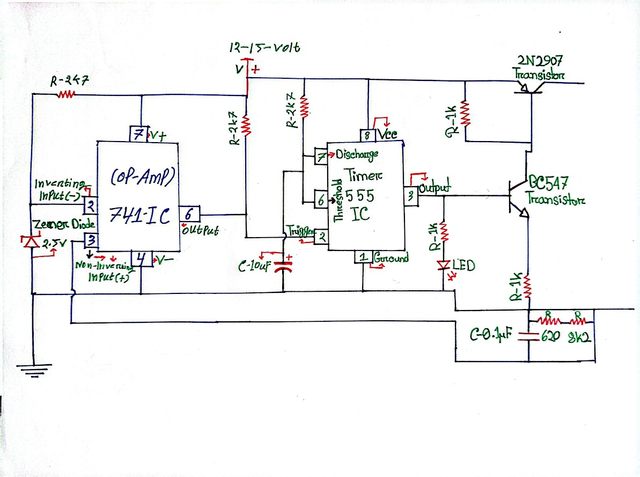 12-15-volt
V +
2N2907
Transistor
R-2k7
R-2k7
R-2k7
R-1k
7 V+
8 Vcc
(OP-AMP)
741-IC
Inverting
Input(-)
2
Zener Diode
2.5V
3
Non-Inverting
Input(+)
4 V-
6
Output
7 Discharge
Timer
555
IC
6 Threshold
Trigger
2
3 Output
1 Ground
BC547
Transistor
C-10uF
+
R-1k
LED
R-1k
C-0.1µF
R R
620 2k2